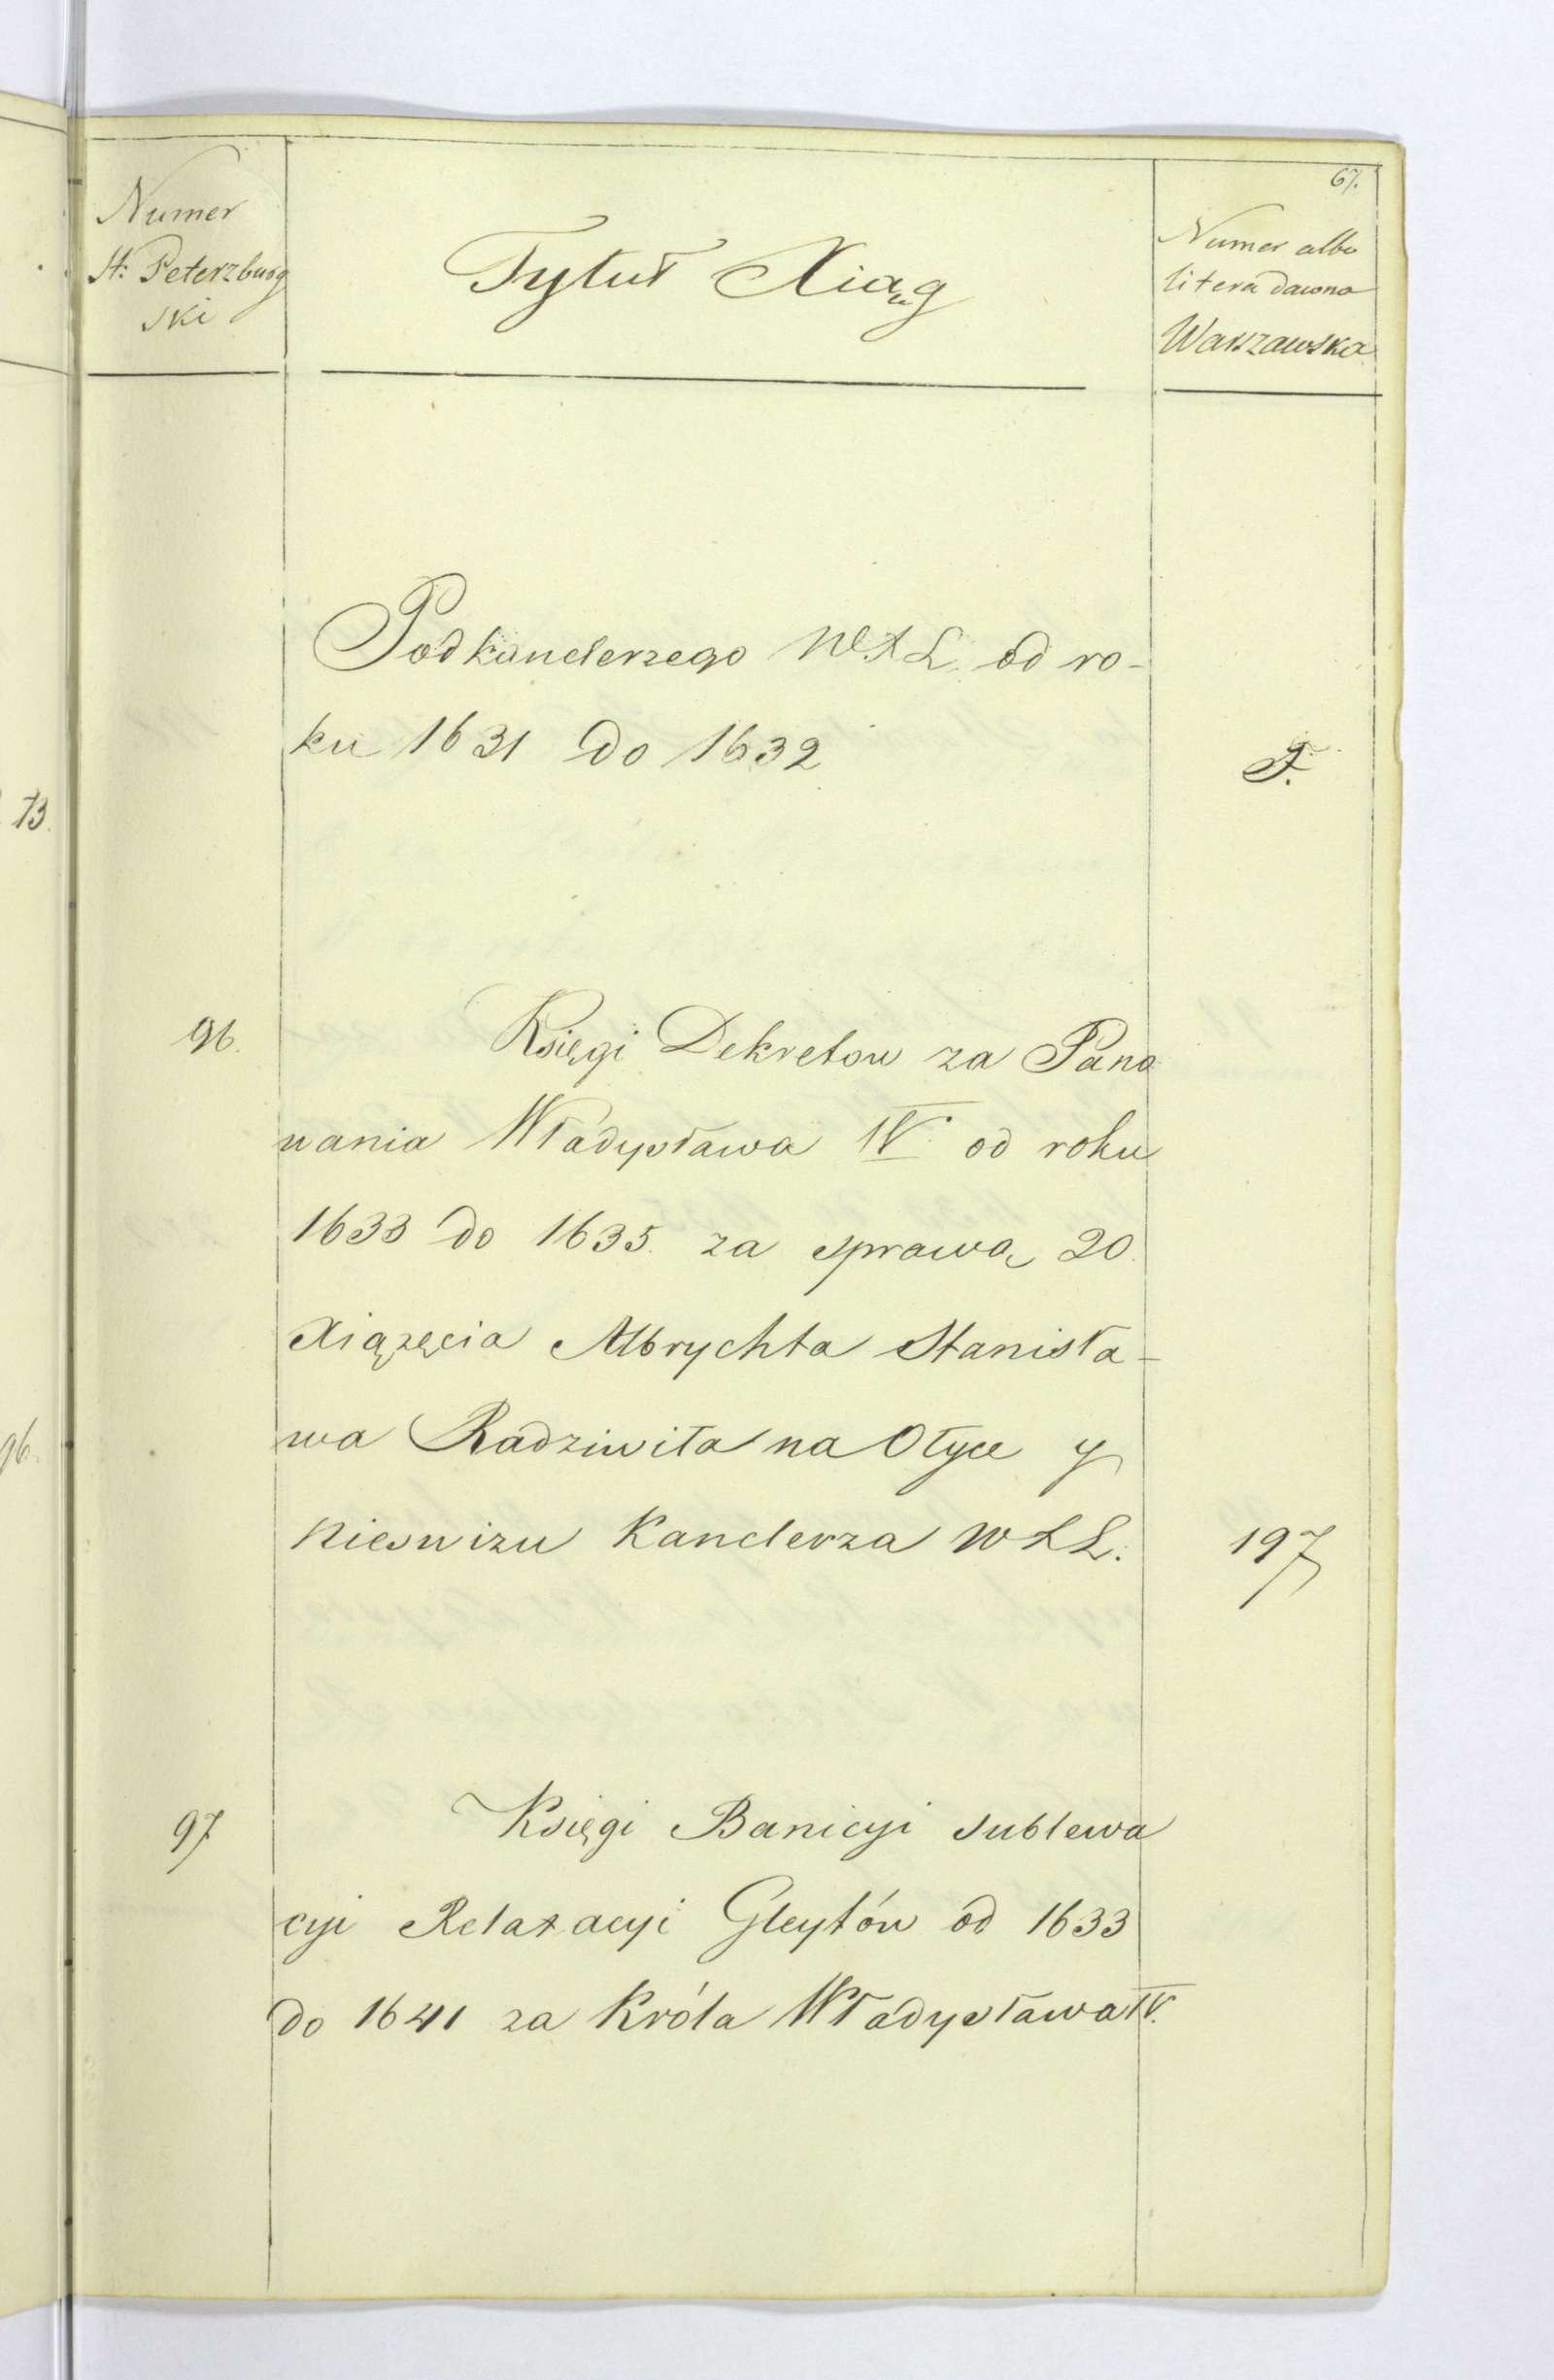 67.
Numer
St: Peterzburg
ski
Tytuł Xiąg
Numer albo
litera dawna
Warszawska
Podkanclerzego W.X.L. od ro-
ku 1631 do 1632
73.
96.
Księgi Dekretow za Pano
wania Władysława IV. od roku
1633 do 1635. za sprawą 20.
Xiążęcia Albrychta Stanisła-
wa Radziwiła na Ołyce y
96.
Nieswizu Kanclerza W X L.
197
97
Księgi Banicyi sublewa
cyi Relaxacyi Gleytów od 1633
do 1641 za Króla Władysława IV.